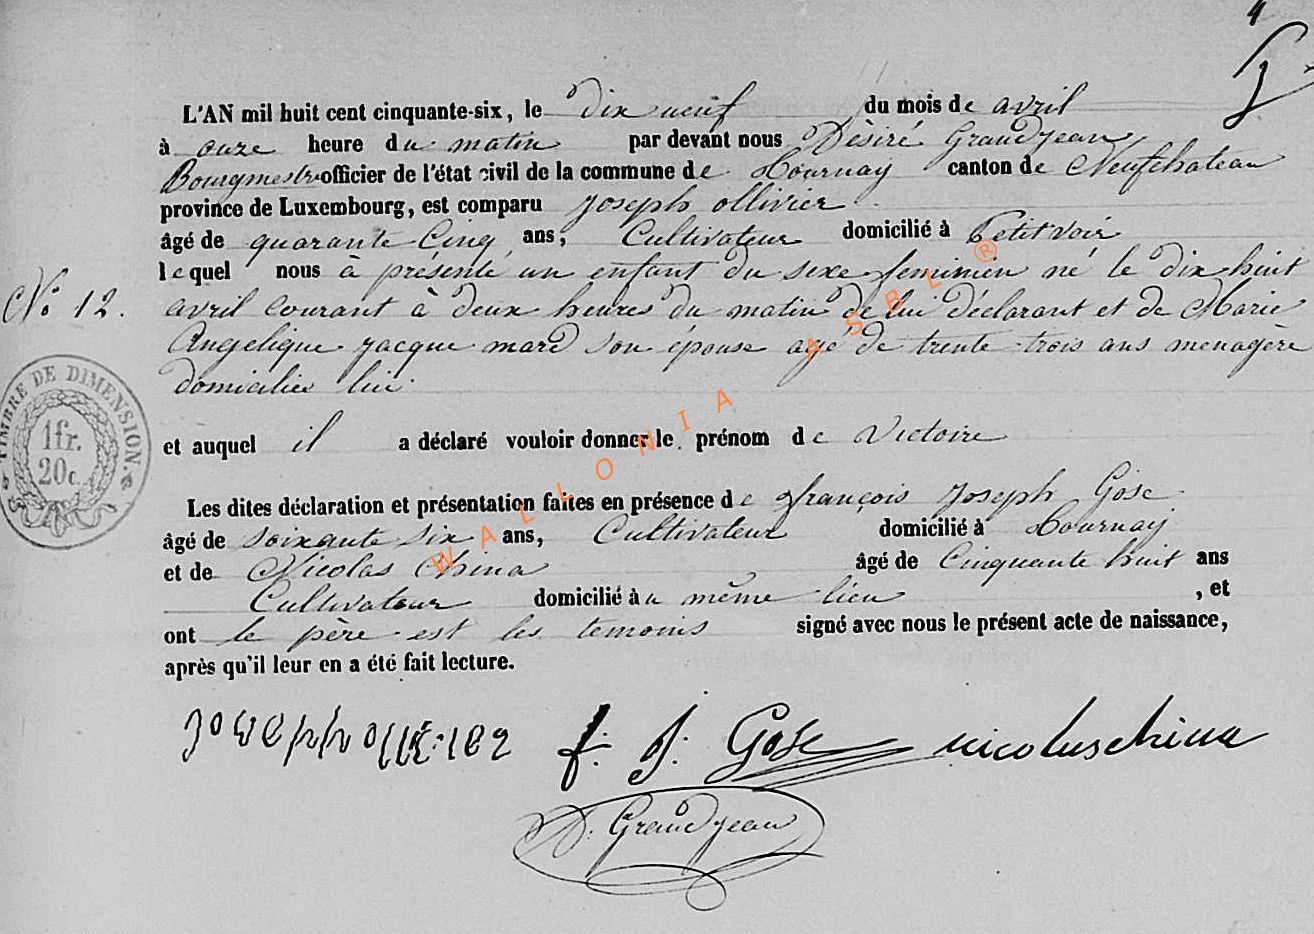 4
L'AN mil huit cent cinquante-six, le dix neuf du mois de avril
à onze heure du matin par devant nous Dèsiré Grandjean
Bourgmestre officier de l'état civil de la commune de Tournay canton de Neufchateau
province de Luxembourg, est comparu Joseph ollivier
âgé de quarante Cinq ans, Cultivateur domicilié à Petitvoir
lequel nous à présenté un enfant du sexe feminien né le dix huit
No 12. avril courant à deux heures du matin de lui déclarant et de Marie
Angelique jacque mard son épouse agé de trente trois ans menagère
domicilies lui.
et auquel il a déclaré vouloir donner le prénom de Victoire
TIMBRE DE DIMENSION.
1fr.
20c.
Les dites déclaration et présentation faites en présence de françois Joseph Gose
âgé de soixante six ans, Cultivateur domicilié à Tournay
et de Nicolas China âgé de Cinquante huit ans
Cultivateur domicilié au même lieu , et
ont le père est les temoins signé avec nous le présent acte de naissance,
après qu'il leur en a été fait lecture.
f. J. Gose nicolas china
D. Grandjean
WALLONIA ASBL ®